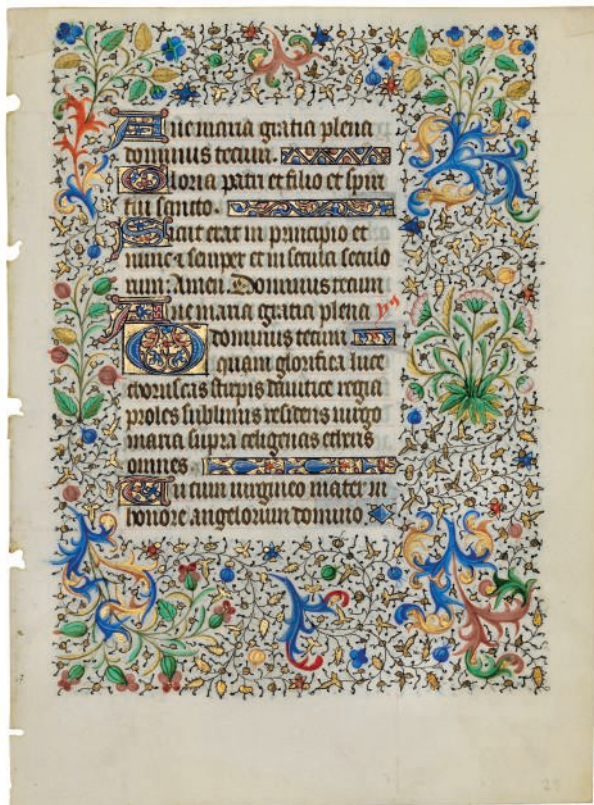 Aue maria gratia plena
dominus tecum.
Gloria patri et filio et spiri
tui sancto.
Sicut erat in principio et
nunc et semper et in secula seculo
rum: Amen. Dominus tecum
Aue maria gratia plena
dominus tecum
O quam glorifica luce
choruscas stirpis dauitice regia
proles sublimis residens uirgo
maria supra celigenas etheris
omnes
Tu cum uirgineo mater
honore angelorum domino
25